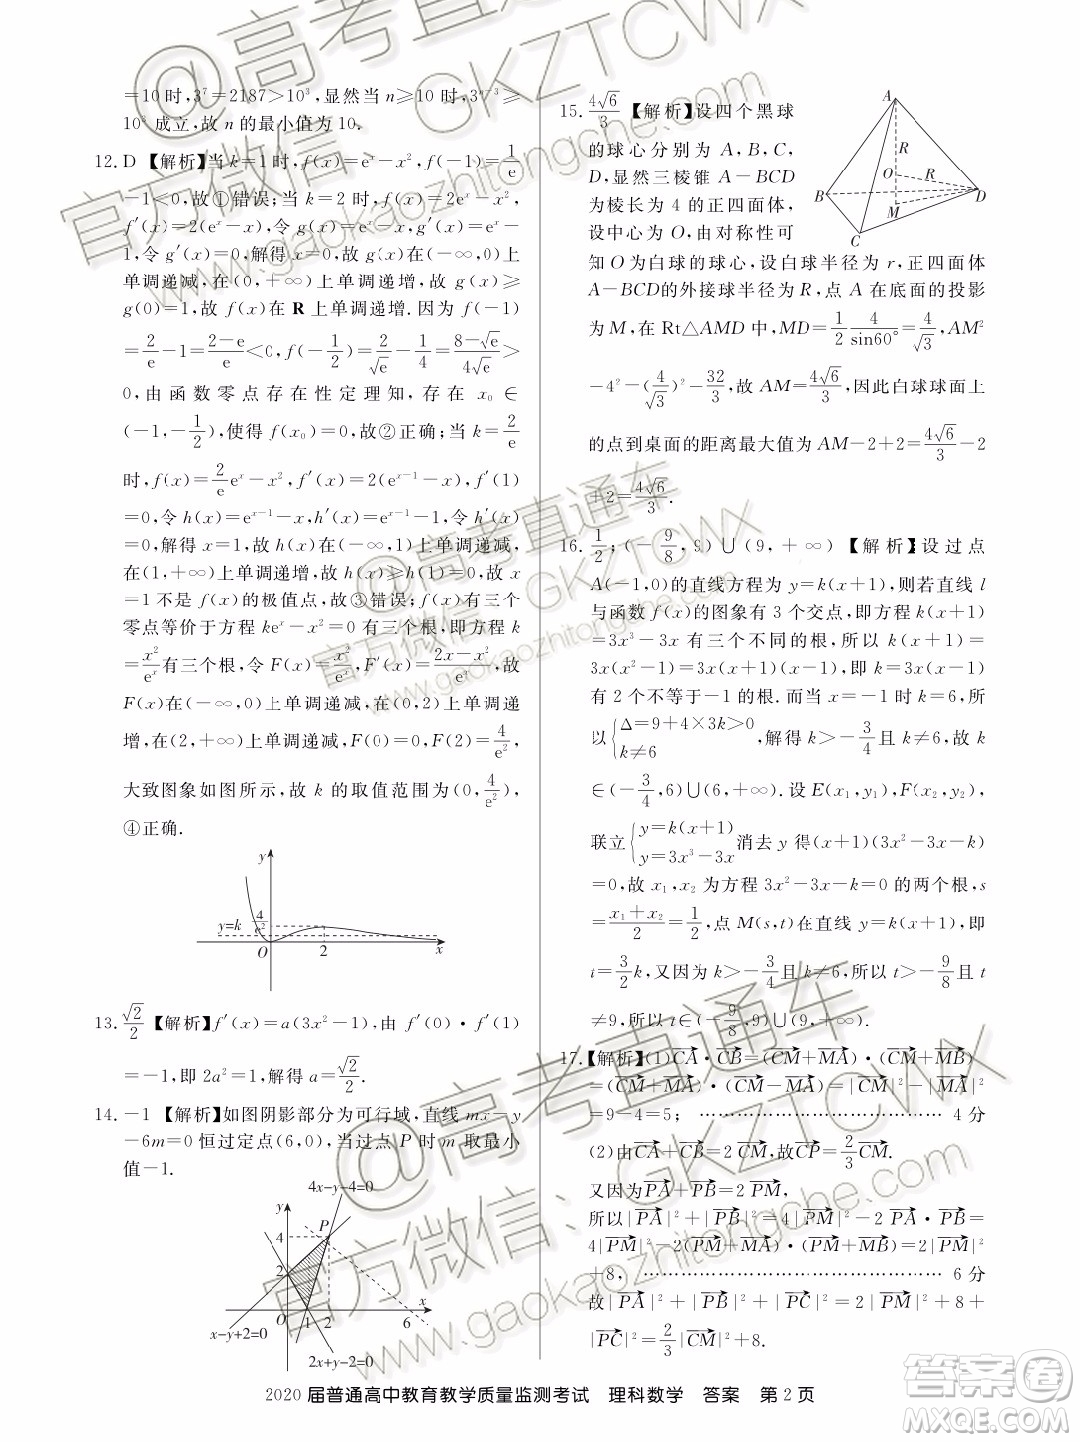 =10 时,3⁷=2187>10³,显然当 n≥10 时,3ⁿ⁻³≥
10³ 成立,故 n 的最小值为 10.
12. D 【解析】当 k=1 时,f(x)=eˣ-x²,f(-1)=1/e
-1<0,故①错误;当 k=2 时,f(x)=2eˣ-x²,
f′(x)=2(eˣ-x),令 g(x)=eˣ-x,g′(x)=eˣ-
1,令 g′(x)=0,解得 x=0,故 g(x)在(-∞,0)上
单调递减,在(0,+∞)上单调递增,故 g(x)≥
g(0)=1,故 f(x)在 R 上单调递增.因为 f(-1)
=2/e-1=(2-e)/e<0,f(-1/2)=2/√e-1/4=(8-√e)/(4√e)>
0,由函数零点存在性定理知,存在 x₀∈
(-1,-1/2),使得 f(x₀)=0,故②正确;当 k=2/e
时,f(x)=2/e eˣ-x²,f′(x)=2(eˣ⁻¹-x),f′(1)
=0,令 h(x)=eˣ⁻¹-x,h′(x)=eˣ⁻¹-1,令 h′(x)
=0,解得 x=1,故 h(x)在(-∞,1)上单调递减,
在(1,+∞)上单调递增,故 h(x)≥h(1)=0,故 x
=1 不是 f(x)的极值点,故③错误;f(x)有三个
零点等价于方程 keˣ-x²=0 有三个根,即方程 k
=x²/eˣ有三个根,令 F(x)=x²/eˣ,F′(x)=(2x-x²)/eˣ,故
F(x)在(-∞,0)上单调递减,在(0,2)上单调递
增,在(2,+∞)上单调递减,F(0)=0,F(2)=4/e²,
大致图象如图所示,故 k 的取值范围为(0,4/e²),
④正确.
y
y=k
4/e²
O
2
x
13. √2/2 【解析】f′(x)=a(3x²-1),由 f′(0)·f′(1)
=-1,即 2a²=1,解得 a=√2/2.
14. -1 【解析】如图阴影部分为可行域,直线 mx-y
-6m=0 恒过定点(6,0),当过点 P 时 m 取最小
值-1.
4x-y-4=0
y
P
4
2
O
1
2
6
x
x-y+2=0
2x+y-2=0
15. 4√6/3 【解析】设四个黑球
的球心分别为 A,B,C,
D,显然三棱锥 A-BCD
为棱长为 4 的正四面体,
设中心为 O,由对称性可
A
R
O
R
B
D
M
C
知 O 为白球的球心,设白球半径为 r,正四面体
A-BCD的外接球半径为 R,点 A 在底面的投影
为 M,在 Rt△AMD 中,MD=1/2·4/sin60°=4/√3,AM²
-4²-(4/√3)²-32/3,故 AM=4√6/3,因此白球球面上
的点到桌面的距离最大值为 AM-2+2=4√6/3-2
+2=4√6/3.
16. 1/2;(-9/8,9)∪(9,+∞) 【解析】设过点
A(-1,0)的直线方程为 y=k(x+1),则若直线 l
与函数 f(x)的图象有 3 个交点,即方程 k(x+1)
=3x³-3x 有三个不同的根,所以 k(x+1)=
3x(x²-1)=3x(x+1)(x-1),即 k=3x(x-1)
有 2 个不等于-1 的根.而当 x=-1 时 k=6,所
以{Δ=9+4×3k>0 k≠6,解得 k>-3/4且 k≠6,故 k
∈(-3/4,6)∪(6,+∞).设 E(x₁,y₁),F(x₂,y₂),
联立{y=k(x+1) y=3x³-3x消去 y 得(x+1)(3x²-3x-k)
=0,故 x₁,x₂ 为方程 3x²-3x-k=0 的两个根,s
=(x₁+x₂)/2=1/2,点 M(s,t)在直线 y=k(x+1),即
i=3/2k,又因为 k>-3/4且 k≠6,所以 t>-9/8且 t
≠9,所以 t∈(-9/8,9)∪(9,+∞).
17.【解析】(1)CA·CB=(CM+MA)·(CM+MB)
=(CM+MA)·(CM-MA)=|CM|²-|MA|²
=9-4=5; …………………………………… 4 分
(2)由CA+CB=2CM,故CP=2/3CM.
又因为PA+PB=2PM,
所以|PA|²+|PB|²=4|PM|²-2PA·PB=
4|PM|²-2(PM+MA)·(PM+MB)=2|PM|²
+8, …………………………………………… 6 分
故|PA|²+|PB|²+|PC|²=2|PM|²+8+
|PC|²=2/3|CM|²+8.
2020 届普通高中教育教学质量监测考试 理科数学 答案 第 2 页
@高考直通车
官方微信:GKZTCWX
www.gaokaozhitongche.com
答案圈
MXQE.COM